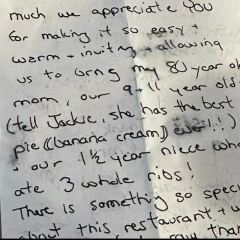 much we appreciate you
for making it so easy +
warm + inviting + allowing
us to bring my 80 year ol
mom, our 9 + 11 year old.
(tell Jackie, she has the best
pie ((banana cream)) ever!!)
+ our 1½ year niece who
ate 3 whole ribs!
There is something so spec
about this restaurant +
than